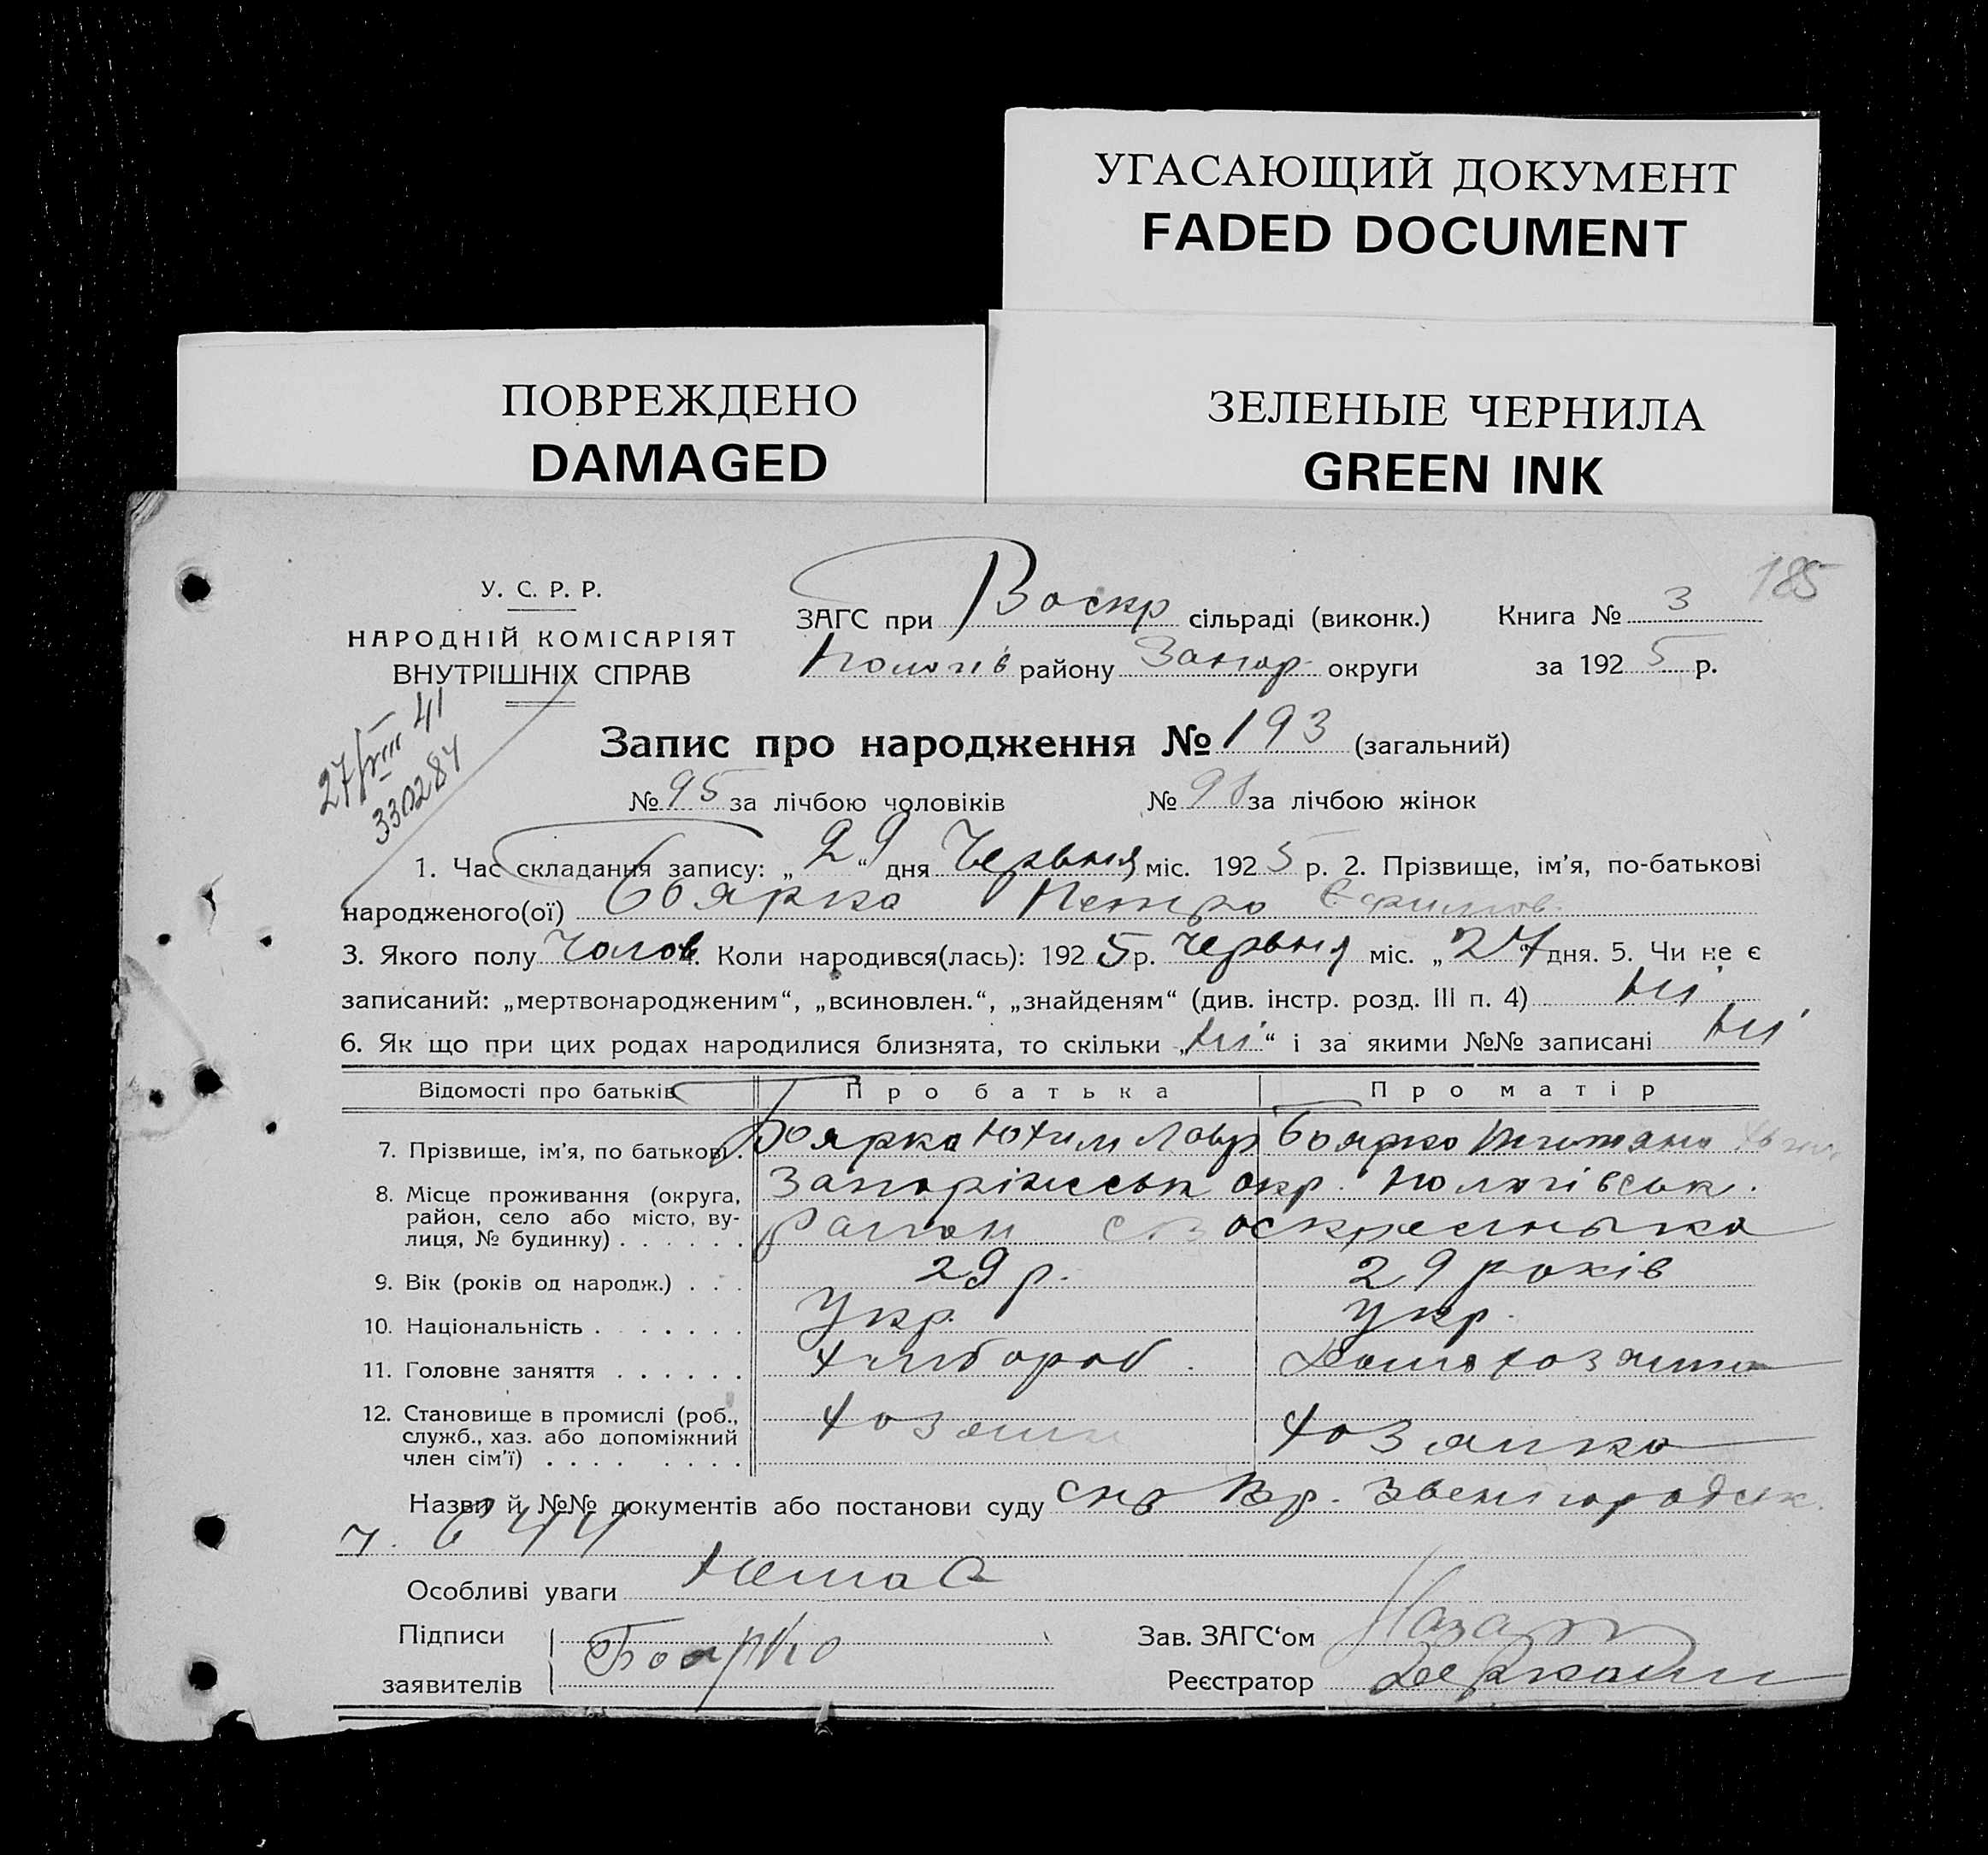 УГАСАЮЩИЙ ДОКУМЕНТ
FADED DOCUMENT
ПОВРЕЖДЕНО
DAMAGED
ЗЕЛЕНЫЕ ЧЕРНИЛА
GREEN INK
185
У. С. Р. Р.
НАРОДНІЙ КОМІСАРІЯТ
ВНУТРІШНІХ СПРАВ
ЗАГС при Воскр сільраді (виконк.) Книга № 3
Пологів району Запор. округи за 1925 р.
27/VIII 41
330284
Запис про народження № 193 (загальний)
№ 95 за лічбою чоловіків № 98 за лічбою жінок
1. Час складання запису: „29“ дня Червня міс. 1925 р. 2. Прізвище, ім’я, по-батькові
народженого(ої) Боярко Петро Ефимов.
3. Якого полу Чолов. Коли народився(лась): 1925 р. Червня міс. „27 дня. 5. Чи не є
записаний: „мертвонародженим“, „всиновлен.“, „знайденям“ (див. інстр. розд. III п. 4) Ні
6. Як що при цих родах народилися близнята, то скільки „Ні“ і за якими №№ записані Ні
Відомості про батьків Про батька Про матір
7. Прізвище, ім’я, по батькові. Боярко Юхим Лавр Боярко
8. Місце проживання (округа, район, село або місто, вулиця, № будинку) Запоріжськ окр. Пологівськ.
район с Воскресенька
9. Вік (років од народж.) . . . 29 р. 29 років
10. Національність . . . . . . . Укр. Укр.
11. Головне заняття . . . . . . Хлібороб. Домохозяйка
12. Становище в промислі (роб., служб., хаз. або допоміжний член сім’ї) . . . . . . . . Хозяин Хозяйка
Назви й №№ документів або постанови суду Звенігородськ.
Ч. 6
Особливі уваги Нема
Підписи заявителів Боярко
Зав. ЗАГС‘ом
Реєстратор